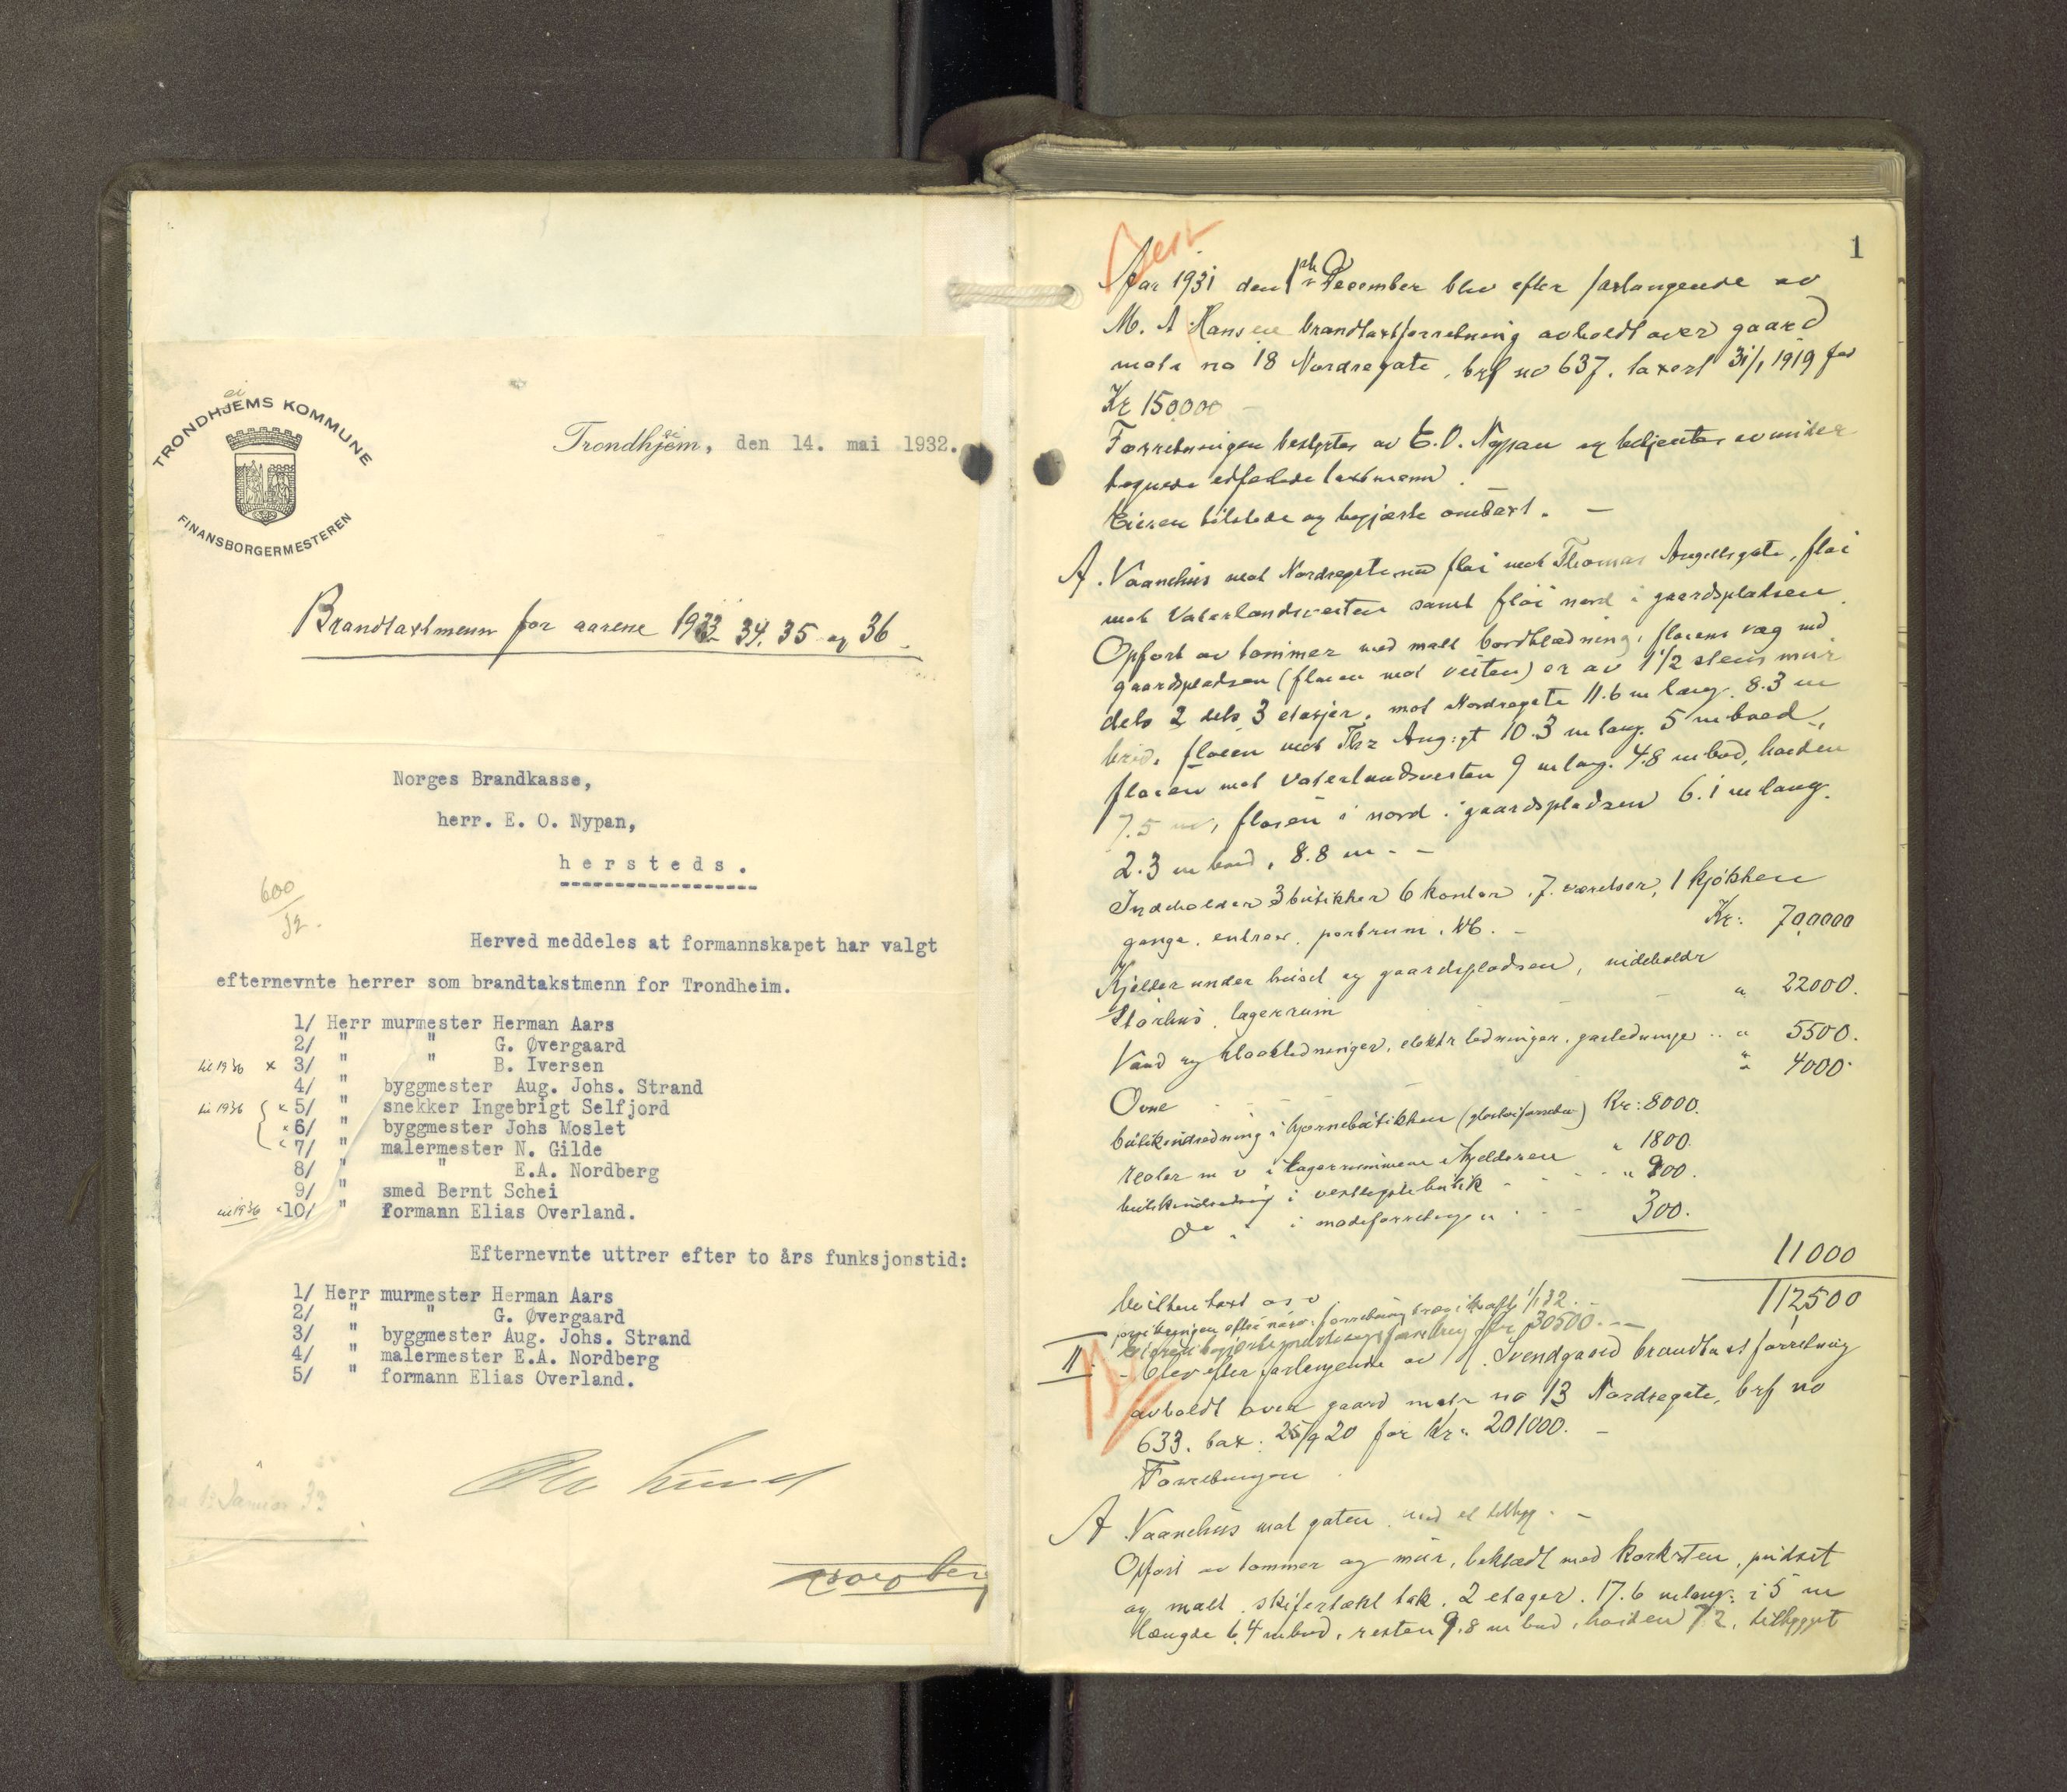 TRONDHJEMS KOMMUNE
ei
FINANSBORGERMESTEREN
Trondhjem, den 14. mai 1932.
ei
Brandtaxtmenn for aarene 1933 34. 35 og 36.
Norges Brandkasse,
herr. E. O. Nypan,
hersteds.
600
Herved meddeles at formannskapet har valgt
efternevnte herrer som brandtakstmenn for Trondheim.
1/ Herr murmester Herman Aars
2/ " " G. Øvergaard
til 1936 x 3/ " " B. Iversen
4/ " byggmester Aug. Johs. Strand
til 1936 { x 5/ " snekker Ingebrigt Selfjord
x 6/ " byggmester Johs Moslet
x 7/ " malermester N. Gilde
8/ " " E.A. Nordberg
9/ " smed Bernt Schei
til 1936 x 10/ " formann Elias Overland.
Efternevnte uttrer efter to års funksjonstid:
1/ Herr murmester Herman Aars
2/ " " G. Øvergaard
3/ " byggmester Aug. Johs. Strand
4/ " malermester E.A. Nordberg
5/ " formann Elias Overland.
1
Aar 1931 den December blev efter forlangende av
M. A Hansen brandtaxtforretning avholdt over gaard
matr no 18 Nordregate, brf no 637. taxert 31/1 1919 for
Kr 150000 -
Forretningen bestyrtes av E.O. Nypan og betjentes av under
tegnede edfæstede taxtmenn.
Eieren tilstede og begjærte omtaxt. -
A. Vaanehus mot Nordregate med fløi mot Thomas Angellsgate, fløi
mot Vaterlandsveiten samt fløi nord i gaardspladsen.
Opført av tømmer med malt bordklædning, fløiens væg mot
gaardspladsen (fløien mot veiten) er av 1 1/2 stens mur
dels 2 dels 3 etasjer, mot Nordregate 11.6 m lang. 8.3 m
bred, fløien mot Ths Ang:gt 10.3 m lang. 5 m bred,
fløien mot Vaterlandsveiten 9 m lang. 4.8 m bred, høiden
7.5 m, fløien i nord i gaardspladsen 6.1 m lang.
2.3 m bred, 8.8 m - -
Indeholder 3 butikker 6 kontor, 7 værelser, 1 kjøkken
gange, entreer, portrum, WC. - Kr: 70,000
Kjelder under huset og gaardspladsen, indeholdr
lagerrum " 22000.
Vand og kloakledninger, elektr ledninger, gasledninge .. " 5500.
Ovne " 4000.
butikindredning i hjørnebutikken Kr: 8000.
reoler m v i lagerrummene i kjelderen " 1800.
butikindredning i vestlegste butik - - - " 900.
do " i modeforretningen - - - 300.
11000
112,500
hvilken taxt o s v.
II. - blev efter forlangende av Svendgaard brandtaxtforretning
avholdt over gaard matr no 13 Nordregate, brf no
633. tax: 25/9 20 for Kr: 201000. -
Forretningen
A Vaanehus mot gaten, med et tilbygg. -
Opført av tømmer og mur, beklædt med korksten, pudset
og malt, skifertækt tak, 2 etager. 17.6 m lang. i 5 m
længde 6,4 m bred, resten 9.8 m bred, høiden 7.2, tilbygget